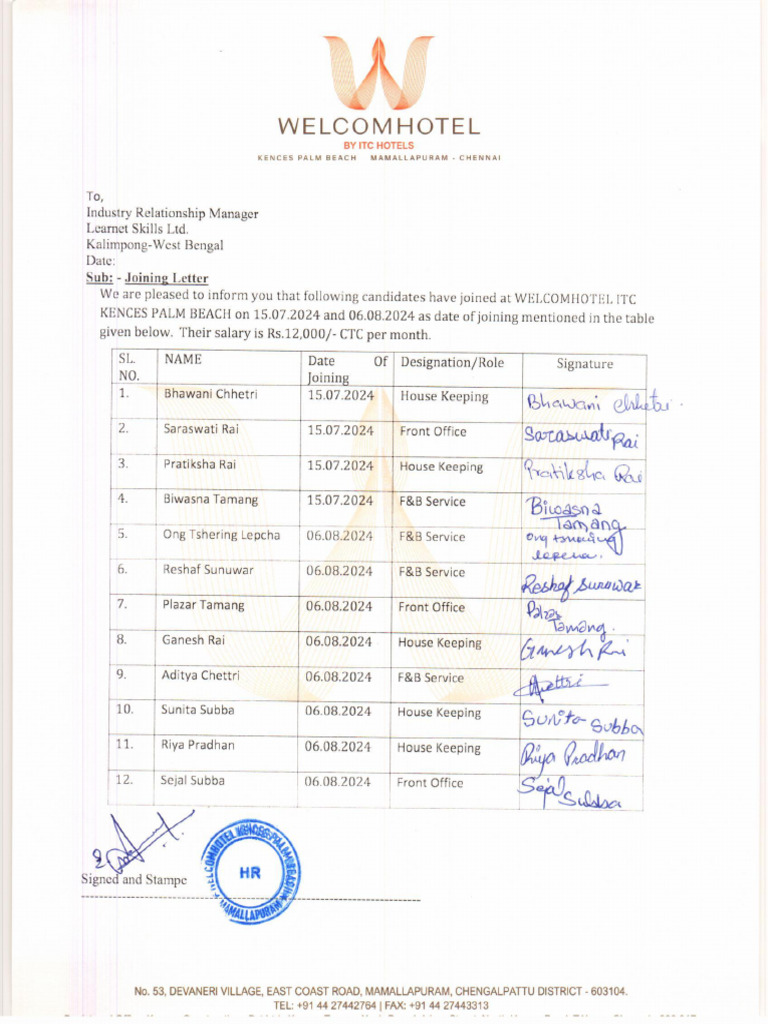 WELCOMHOTEL
BY ITC HOTELS
KENCES PALM BEACH MAMALLAPURAM - CHENNAI
To,
Industry Relationship Manager
Learnet Skills Ltd.
Kalimpong-West Bengal
Date:
Sub: - Joining Letter
We are pleased to inform you that following candidates have joined at WELCOMHOTEL ITC
KENCES PALM BEACH on 15.07.2024 and 06.08.2024 as date of joining mentioned in the table
given below. Their salary is Rs.12,000/- CTC per month.
SL. NAME Date Of Designation/Role Signature
NO. Joining
1. Bhawani Chhetri 15.07.2024 House Keeping Bhawani Chhetri
2. Saraswati Rai 15.07.2024 Front Office Saraswati Rai
3. Pratiksha Rai 15.07.2024 House Keeping Pratiksha Rai
4. Biwasna Tamang 15.07.2024 F&B Service Biwasna
Tamang
5. Ong Tshering Lepcha 06.08.2024 F&B Service Ong Tshering
lepcha.
6. Reshaf Sunuwar 06.08.2024 F&B Service Reshaf Sunuwar
7. Plazar Tamang 06.08.2024 Front Office
Tamang.
8. Ganesh Rai 06.08.2024 House Keeping Ganesh Rai
9. Aditya Chettri 06.08.2024 F&B Service
10. Sunita Subba 06.08.2024 House Keeping Sunita Subba
11. Riya Pradhan 06.08.2024 House Keeping Riya Pradhan
12. Sejal Subba 06.08.2024 Front Office Sejal
Subba
WELCOMHOTEL KENCES PALM BEACH
HR
MAMALLAPURAM
Signed and Stampe
No. 53, DEVANERI VILLAGE, EAST COAST ROAD, MAMALLAPURAM, CHENGALPATTU DISTRICT - 603104.
TEL: +91 44 27442764 | FAX: +91 44 27443313